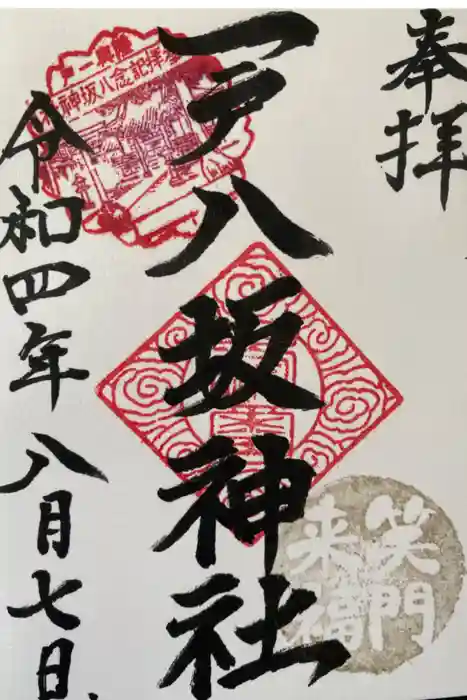 奉拝
一戸八坂神社
令和四年八月七日
参拝記念八坂神社
笑門
来福